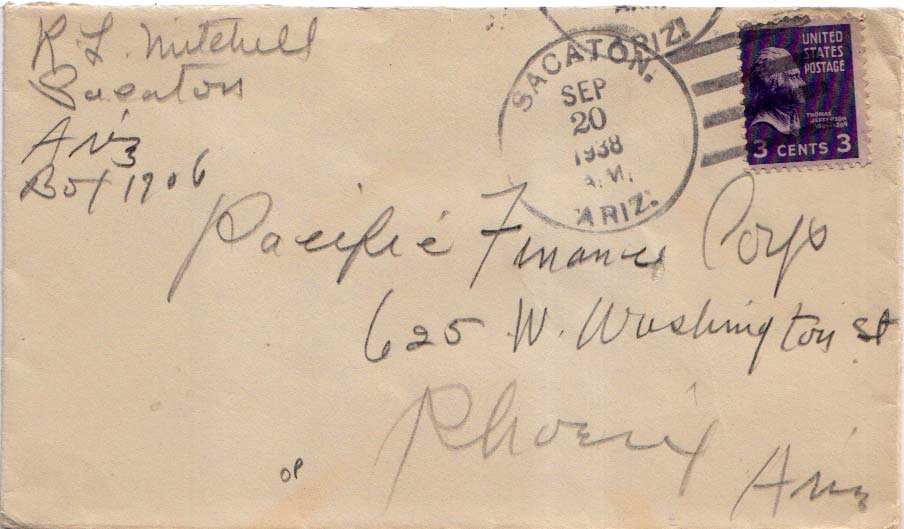 R L. Mitchell
Sacaton
Ariz
Box 1906
ARIZ.
SACATON.
SEP
20
1938
A.M.
ARIZ.
UNITED
STATES
POSTAGE
THOMAS
JEFFERSON
3 CENTS 3
Pacific Finance Corp
625 W. Washington St
Phoenix
Ariz
OP